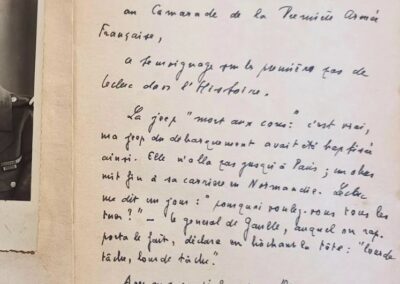 au Camarade de la Première Armée
Française,
ce témoignage sur les premiers pas de
Leclerc dans l'Histoire.
La jeep "mort aux cons:" c'est vrai,
ma jeep du débarquement avait été baptisée
ainsi. Elle n'alla pas jusqu'à Paris; un obus
mit fin à sa carrière en Normandie. Leclerc
me dit un jour: "pourquoi voulez-vous tous les
tuer?" - le général de Gaulle, auquel on rap-
porta le fait, déclara en hochant la tête: "lourde
tâche, lourde tâche".